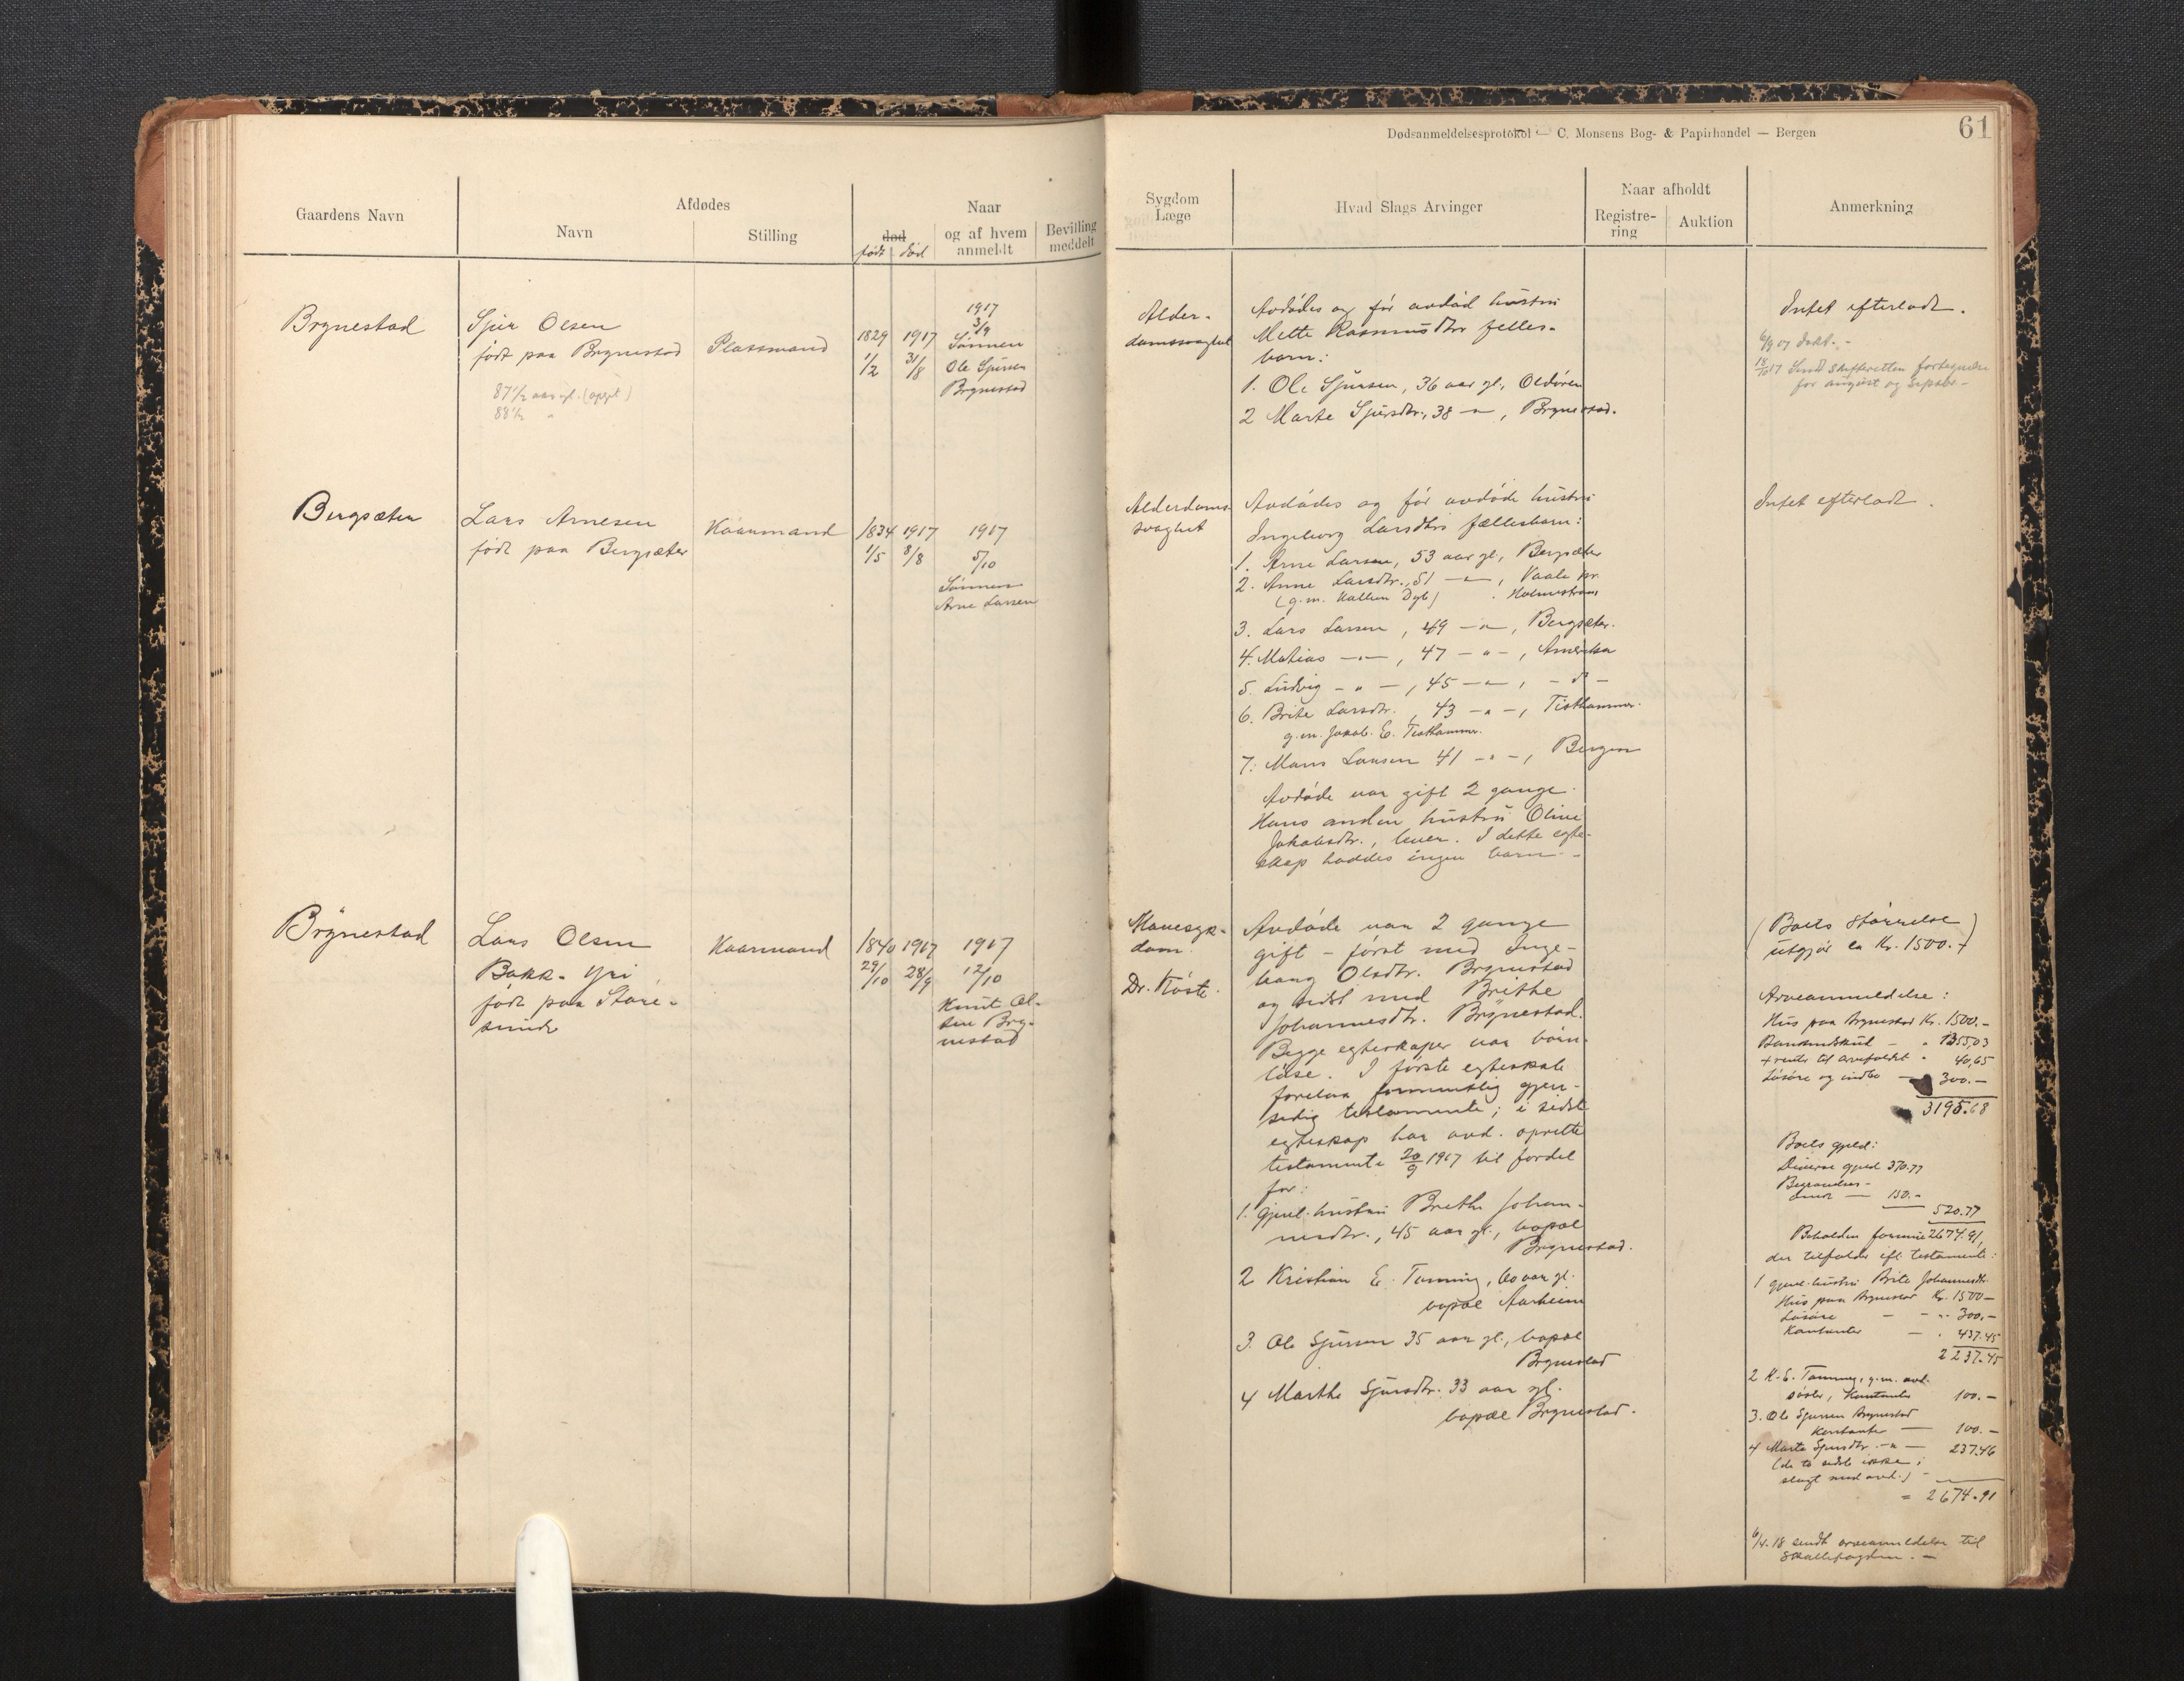 Dødsanmeldelsesprotokol — C. Monsens Bog- & Papirhandel — Bergen
61
Gaardens Navn
Afdødes
Navn
Stilling
Naar
død
født død
og af hvem
anmeldt
Bevilling
meddelt
Sygdom
Læge
Hvad Slags Arvinger
Naar afholdt
Registre-
ring
Auktion
Anmerkning
Brynestad
Sjur Olsen
født paa Brynestad
87 1/2 aar gl. (opgit)
88 1/2 "
Plassmand
1829 1917
1/2 31/8
1917
3/9
Sønnen
Ole Sjursen
Brynestad
Alder-
domssvaghet
Avdødes og før avdød hustru
Mette Rasmusdtr felles-
barn:
1. Ole Sjursen, 36 aar gl., Oldøren
2 Marte Sjursdtr., 38 -"-, Brynestad.
Intet efterladt.
Sendt skifteretten fortegnelse
for august og septbr-
Bergsæter
Lars Arnesen
født paa Bergsæter
Kaarmand
1834 1917
1/5 8/8
1917
5/10
Sønnen
Arne Larsen
Alderdoms-
svaghet
Avdødes og før avdøde hustru
Ingeborg Larsdtrs fællesbarn:
1. Arne Larsen, 53 aar gl., Bergsæter
2. Anne Larsdtr., 51 -"-, Vaale pr.
Holmestrand
3. Lars Larsen, 49 -"-, Bergsæter.
4. Matias -"-, 47 -"-, Amerika
5. Ludvig -"-, 45 -"-, - d -
6. Brite Larsdtr. 43 -"-, Tisthammer.
g.m. Jakob. E. Tisthammer.
7. Mons Larsen 41 -"-, Bergen
Avdøde var gift 2 gange.
Hans anden hustru Oline
Jakobsdtr., lever. I dette egte-
skap haddes ingen barn.-
Intet efterladt.
Brynestad
Lars Olsen
Bakk-Yri
født paa Store-
sunde
Kaarmand
1840 1917
29/10 28/9
1917
12/10
Knut Ol-
sen Bry-
nestad
Mavesyk-
dom
Dr. Koste.
Avdøde var 2 gange
gift - først med Inge-
borg Olsdtr. Brynestad
og sidst med Brithe
Johannesdtr. Brynestad.
Begge egteskaper var barn-
løse. I første egteskab
forelaa formentlig gjen-
sidig testamente; i sidste
egteskap har avd. oprettet
testamente 20/9 1917 til fordel
for:
1. Gjenl. hustru Brethe Johan-
nesdtr., 45 aar gl., bopæl
Brynestad.
2 Kristian E. Tenning, 60 aar gl.
bopæl Aarheim
3. Ole Sjursen 35 aar gl., bopæl
Brynestad
4 Marthe Sjursdtr. 33 aar gl.
bopæl Brynestad.
(Boets størrelse
utgjør ca Kr. 1500.-)
Arveanmeldelse:
Hus paa Brynestad Kr. 1500.-
Bankindskud - " 1355,03
+ rente til arvefaldet " 40,65
Løsøre og indbo - 300.-
3195.68
Boets gjeld:
Diverse gjeld 370.77
Begravelses-
omk - 150.-
520.77
Beholden formue 2674.91,
der tilfalder efl. testamente:
1 gjenl. hustru Brite Johannesdtr.
Hus paa Brynestad Kr. 1500-
Løsøre - - " 300,-
Kontanter - " 437.45
2237.45
2 K. E. Tenning, g.m. avd.
søster, Kontanter 100.-
3. Ole Sjursen Brynestad
Kontanter - 100.-
4 Marte Sjursdtr. -"- 237.46
(de to sidste ikke i
slegt med avd.)
= 2674.91
6/4.18 sendt arveanmeldelse til
Skattefogden. -